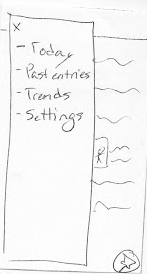 x
- Today
- Past entries
- Trends
- Settings